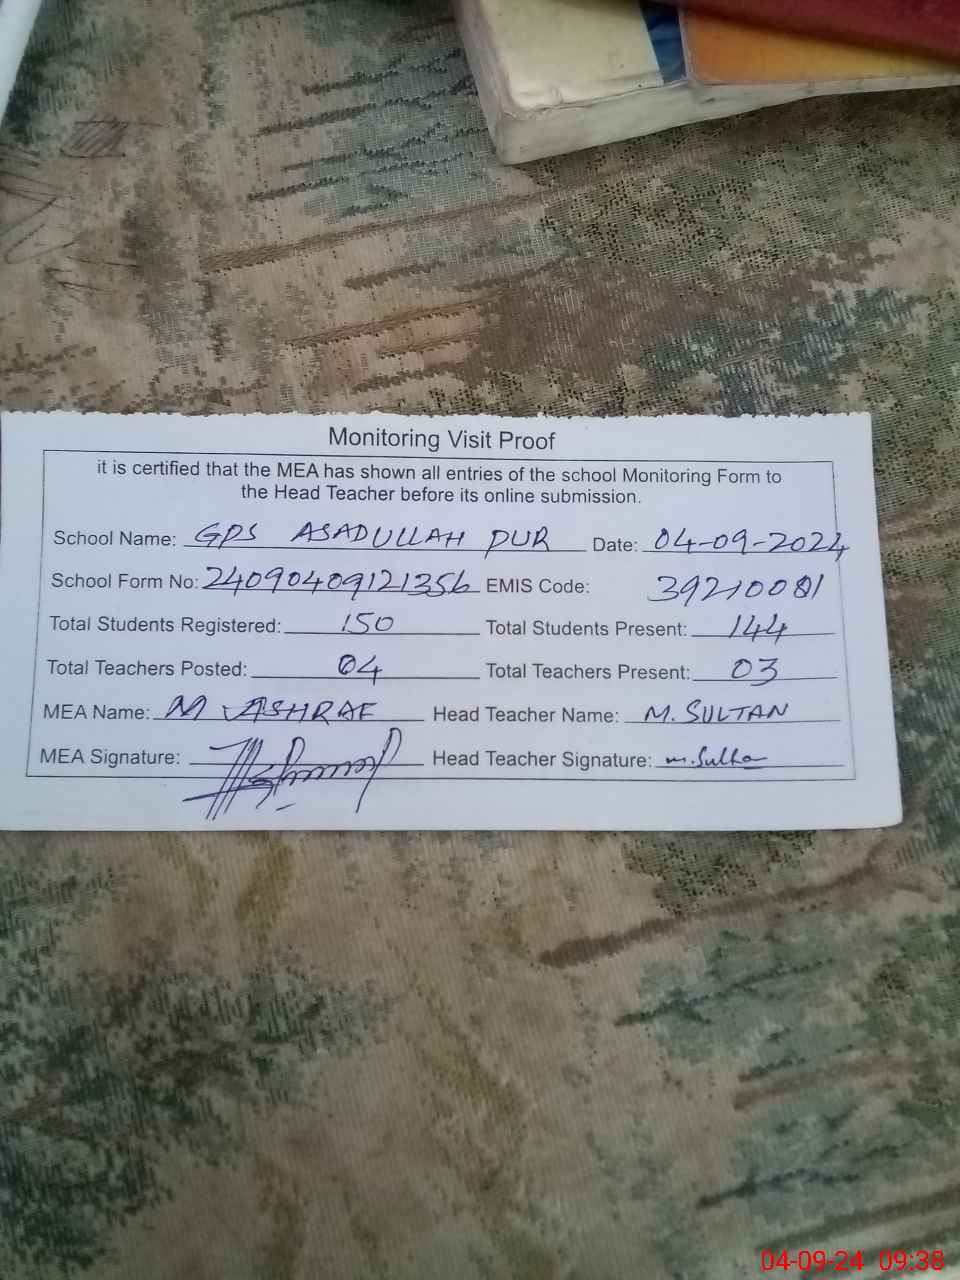 Monitoring Visit Proof
it is certified that the MEA has shown all entries of the school Monitoring Form to
the Head Teacher before its online submission.
School Name: GPS ASADULLAH PUR Date: 04-09-2024
School Form No: 24090409121356 EMIS Code: 39210081
Total Students Registered: 150 Total Students Present: 144
Total Teachers Posted: 04 Total Teachers Present: 03
MEA Name: M ASHRAF Head Teacher Name: M. SULTAN
MEA Signature: Head Teacher Signature: m. Sultan
04-09-24 09:38